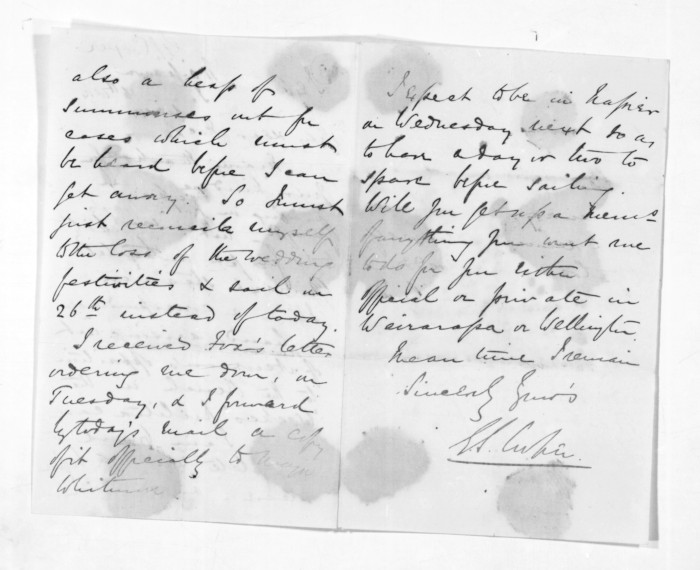 also a heap of
summonses out for
cases which must
be heard before I can
get away. So I must
just reconcile myself
to the loss of the wedding
festivities & sail on
26th instead of today.
I received Fox's letter
ordering me down, on
Tuesday, & I forward
by today's mail a copy
of it officially to Major
Whitmore
I expect to be in Napier
on Wednesday next so as
to have a day or two to
spare before sailing.
Will you get up a memo
of anything you want me
to do for you either
official or private in
Wairarapa or Wellington.
Mean time I remain
Sincerely Yours
G.S. Cooper.